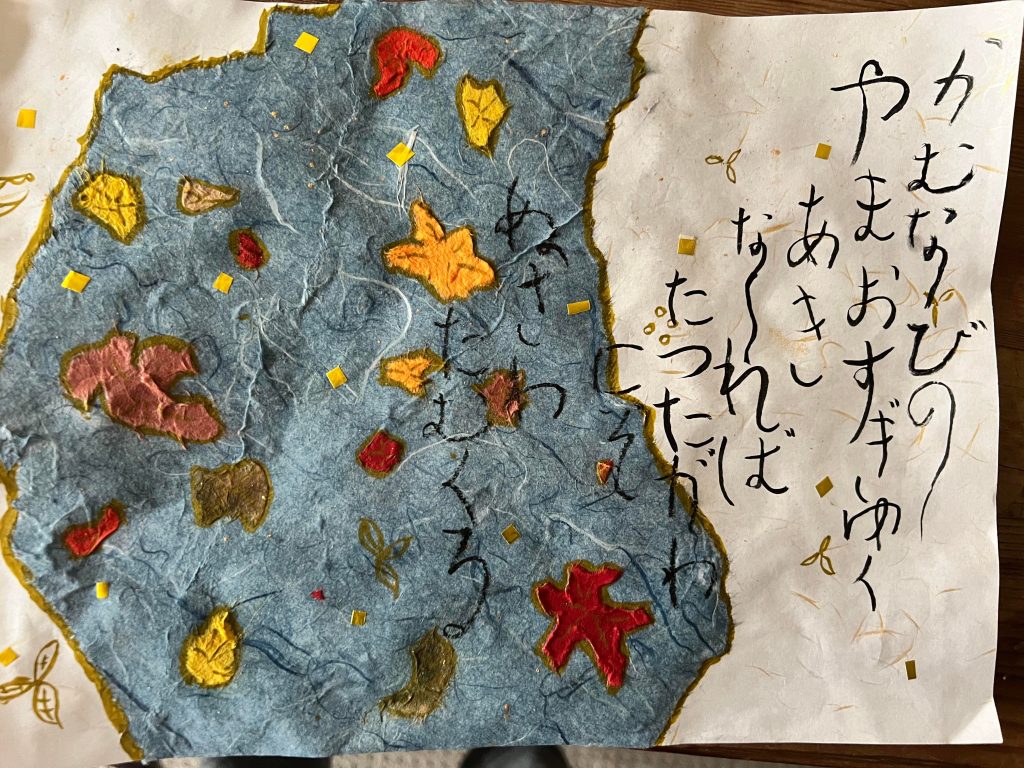 かむなびの
やまおすぎゆく
あき
なれば
たつたがわ
にぞ
ぬさわ
たむくる